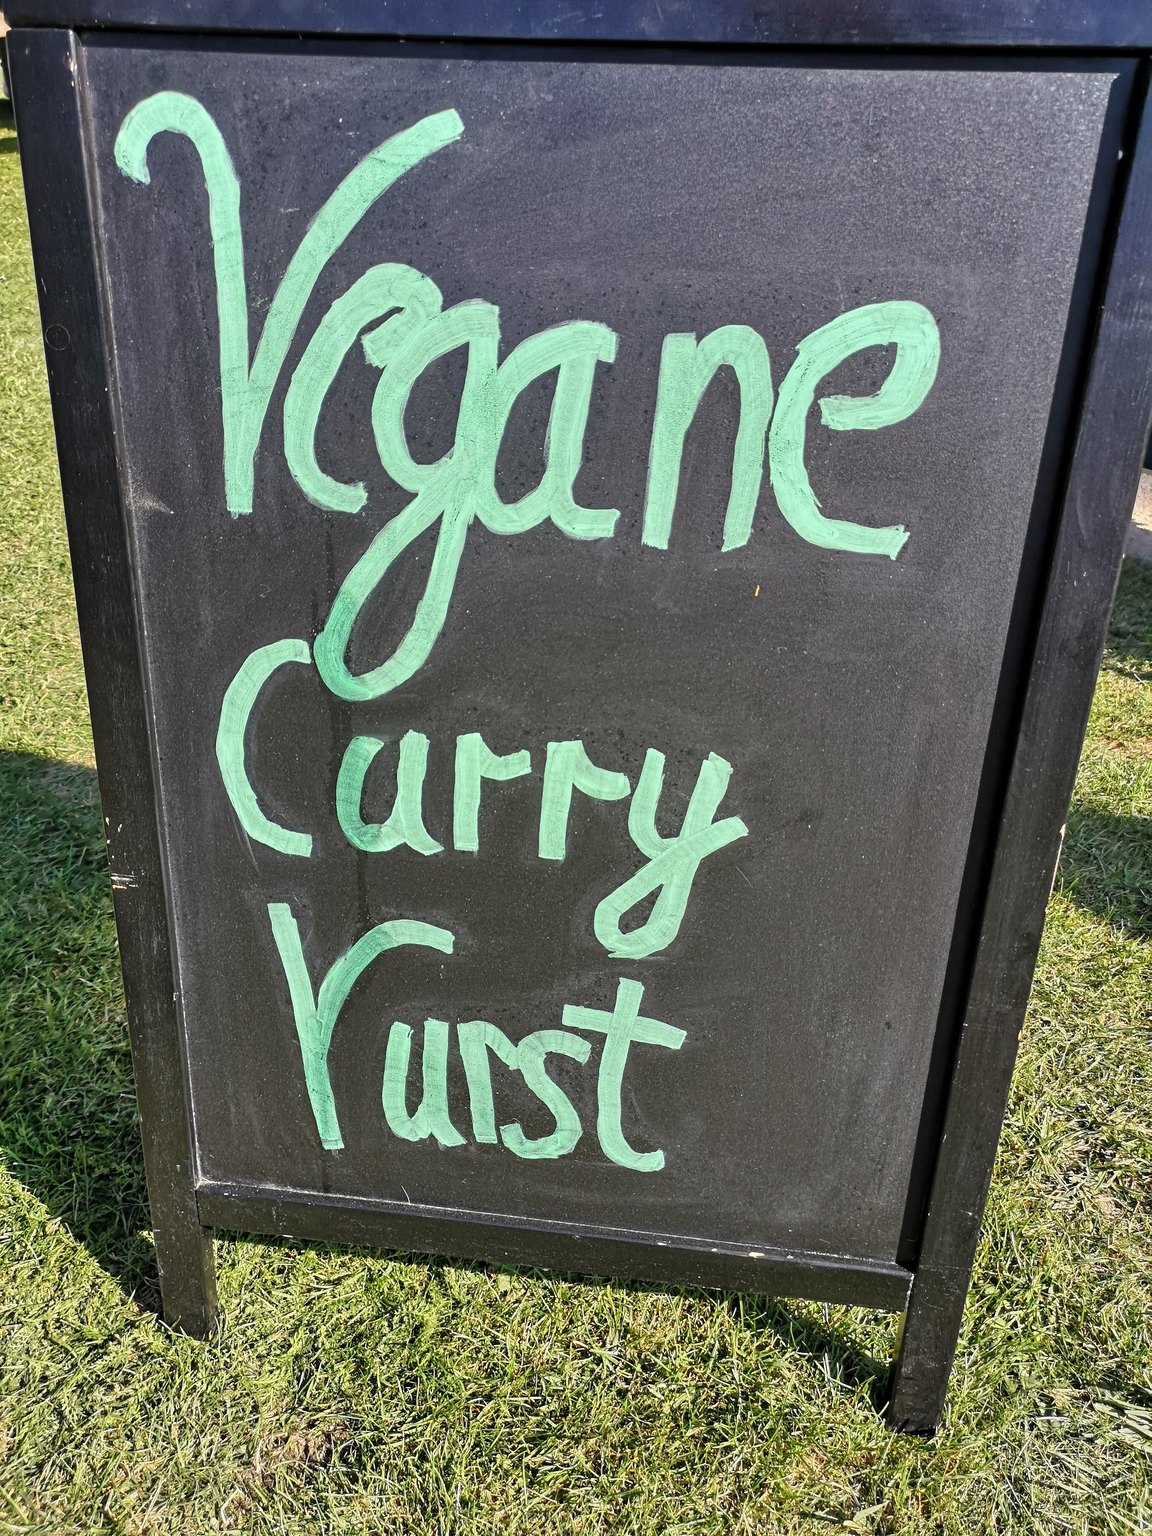 Vegane
Curry
Vurst